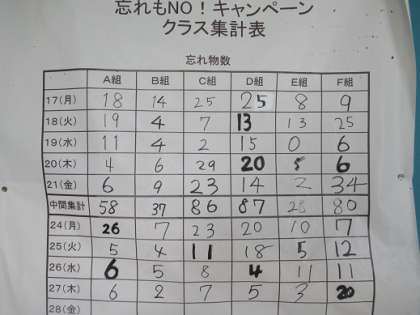 忘れもNO！キャンペーン
クラス集計表
忘れ物数
A組 B組 C組 D組 E組 F組
17(月) 18 14 25 25 8 9
18(火) 19 4 7 13 13 25
19(水) 11 4 2 15 0 6
20(木) 4 6 29 20 5 6
21(金) 6 9 23 14 2 34
中間集計 58 37 86 87 28 80
24(月) 26 7 23 20 10 7
25(火) 5 4 11 18 5 12
26(水) 6 5 8 4 11 11
27(木) 6 2 7 5 3 20
28(金)